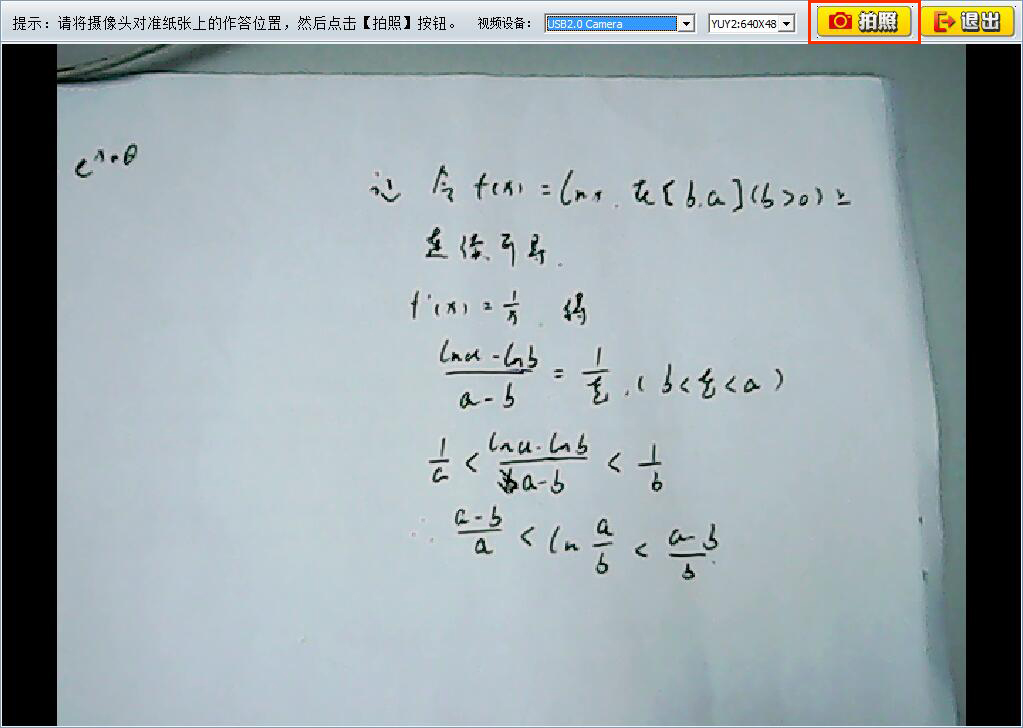 提示：请将摄像头对准纸张上的作答位置，然后点击【拍照】按钮。 视频设备： USB2.0 Camera YUY2:640X48 拍照 退出
e^x·θ
证 令 f(x) = ln x. 在[b.a](b>0)上
连续可导.
f'(x) = 1/x. 得
(ln a - ln b)/(a-b) = 1/ξ. (b<ξ<a)
1/a < (ln a - ln b)/(a-b) < 1/b
∴ (a-b)/a < ln a/b < (a-b)/b.